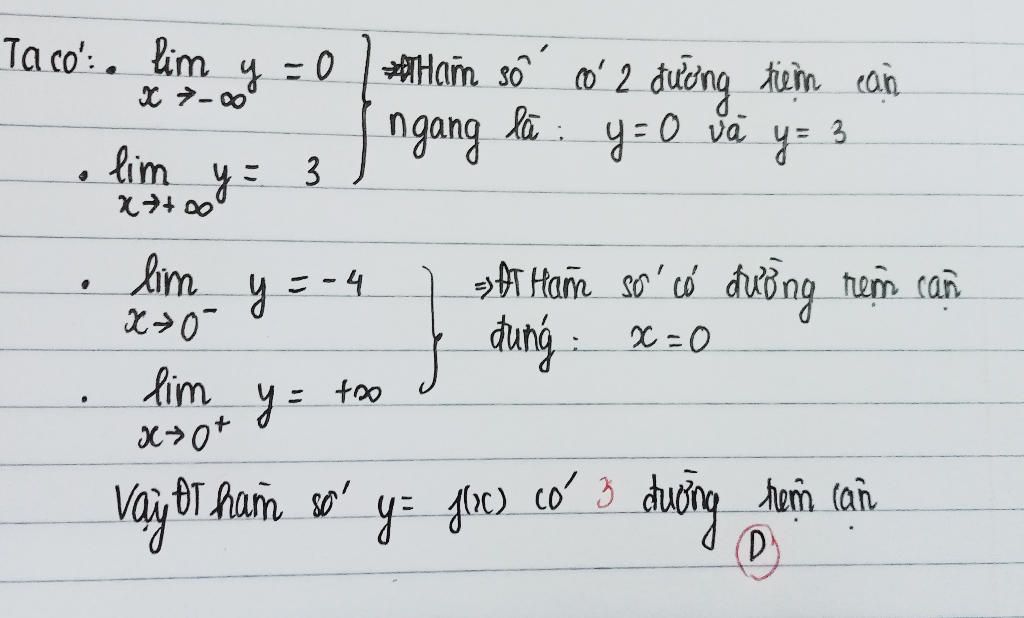 Ta có: • lim y = 0
x → -∞
⇒ ĐT Hàm số có 2 đường tiệm cận
ngang là : y = 0 và y = 3
• lim y = 3
x → +∞
• lim y = -4
x → 0⁻
⇒ ĐT Hàm số có đường tiệm cận
đứng : x = 0
• lim y = +∞
x → 0⁺
Vậy ĐT hàm số y = f(x) có 3 đường tiệm cận
D